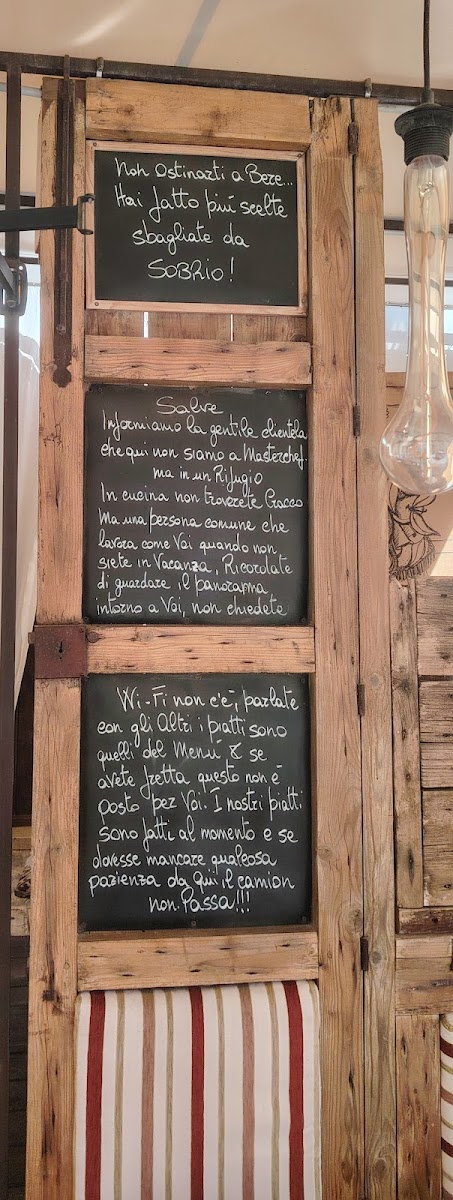 Non Ostinarti a Bere...
Hai fatto più scelte
sbagliate da
SOBRIO!
Salve
Informiamo la gentile clientela
che qui non siamo a Masterchef
ma in un Rifugio
In cucina non troverete Cracco
Ma una persona comune che
lavora come Voi quando non
siete in Vacanza, Ricordate
di guardare il panorama
intorno a Voi, non chiedete
Wi-Fi non c'è, parlate
con gli Altri i piatti sono
quelli del Menù & se
avete fretta questo non è
posto per Voi. I nostri piatti
sono fatti al momento e se
dovesse mancare qualcosa
pazienza da qui il camion
non Passa!!!